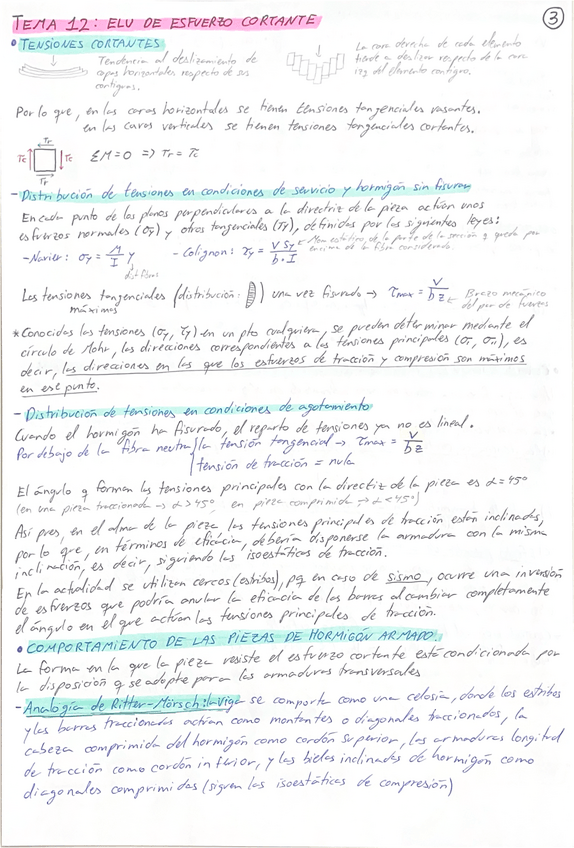 TEMA 12: ELU DE ESFUERZO CORTANTE
3
• TENSIONES CORTANTES
Tendencia al deslizamiento de
capas horizontales respecto de sus
contiguas.
La cara derecha de cada elemento
tiende a deslizar respecto de la cara
izq del elemento contiguo.
Por lo que, en las caras horizontales se tienen tensiones tangenciales rasantes.
en las caras verticales se tienen tensiones tangenciales cortantes.
τr
τc τc ΣM=0 => τr = τc
τr
- Distribución de tensiones en condiciones de servicio y hormigón sin fisurar
En cada punto de los planos perpendiculares a la directriz de la pieza actúan unos
esfuerzos normales (σy) y otros tangenciales (τy), definidas por las siguientes leyes:
- Navier: σy = M/I y - Colignon: τy = V Sy / b · I
Mom estático de la parte de la sección q queda por
encima de la fibra considerada.
dist fibras
Las tensiones tangenciales (distribución: ) una vez fisurado → τmax = V / b z
máximas
Brazo mecánico
del par de fuerzas
* Conocidas las tensiones (σy, τy) en un pto cualquiera, se pueden determinar mediante el
círculo de Mohr, las direcciones correspondientes a las tensiones principales (σI, σII), es
decir, las direcciones en las que los esfuerzos de tracción y compresión son máximos
en ese punto.
- Distribución de tensiones en condiciones de agotamiento
Cuando el hormigón ha fisurado, el reparto de tensiones ya no es lineal.
Por debajo de la fibra neutra la tensión tangencial → τmax = V / b z
tensión de tracción = nula
El ángulo q forman las tensiones principales con la directriz de la pieza es α = 45°
(en una pieza traccionada → α > 45° en pieza comprimida → α < 45°)
Así pues, en el alma de la pieza las tensiones principales de tracción están inclinadas,
por lo que, en términos de eficacia, debería disponerse la armadura con la misma
inclinación, es decir, siguiendo las isoestáticas de tracción.
En la actualidad se utilizan cercos (estribos), pq en caso de sismo, ocurre una inversión
de esfuerzos que podría anular la eficacia de las barras al cambiar completamente
el ángulo en el que actúan las tensiones principales de tracción.
• COMPORTAMIENTO DE LAS PIEZAS DE HORMIGÓN ARMADO.
La forma en la que la pieza resiste el esfuerzo cortante está condicionada por
la disposición q se adopte para las armaduras transversales
- Analogía de Ritter-Mörsch: la viga se comporta como una celosía, donde los estribos
y las barras traccionadas actúan como montantes o diagonales traccionados, la
cabeza comprimida del hormigón como cordón superior, las armaduras longitud
de tracción como cordón inferior, y las bielas inclinadas de hormigón como
diagonales comprimidas (siguen las isoestáticas de compresión)